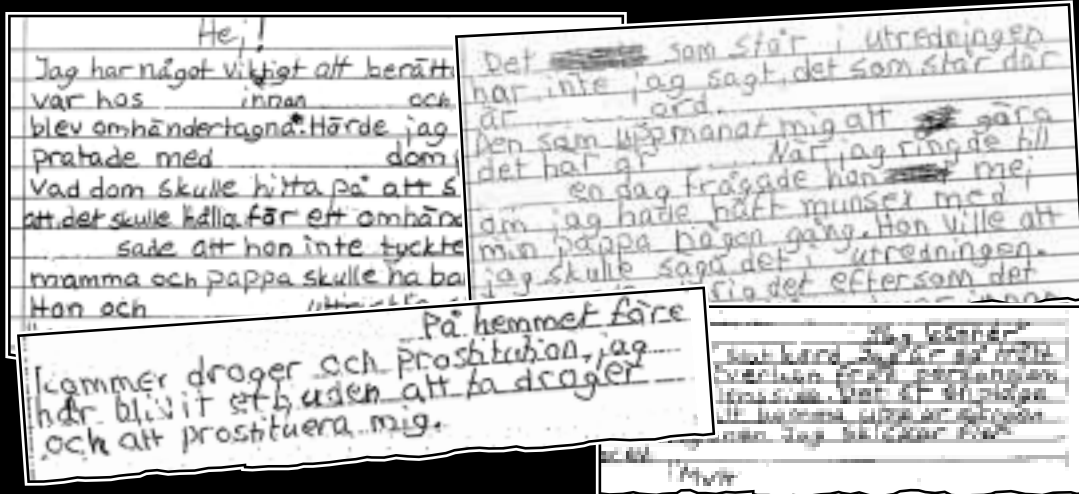 Hej!
Jag har något viktigt att berätt
var hos innan och
blev omhändertagna. Hörde jag
pratade med dom
vad dom skulle hitta på att s
att det skulle hålla för ett omhän
sade att hon inte tyckte
mamma och pappa skulle ha ba
Hon och
Det som står i utredningen
har inte jag sagt, det som står där
är ord.
Den som uppmanat mig att göra
det här är När jag ringde till
en dag frågade hon mej
om jag hade haft munsex med
min pappa någon gång. Hon ville att
jag skulle säga det i utredningen.
det eftersom det
innan
På hemmet före
kommer droger och prostitution, jag
har blivit erbjuden att ta droger
och att prostituera mig.
Jag känner
hård Jag är så trött
från
Det är en plåga
att komma upp ur sängen
Jag